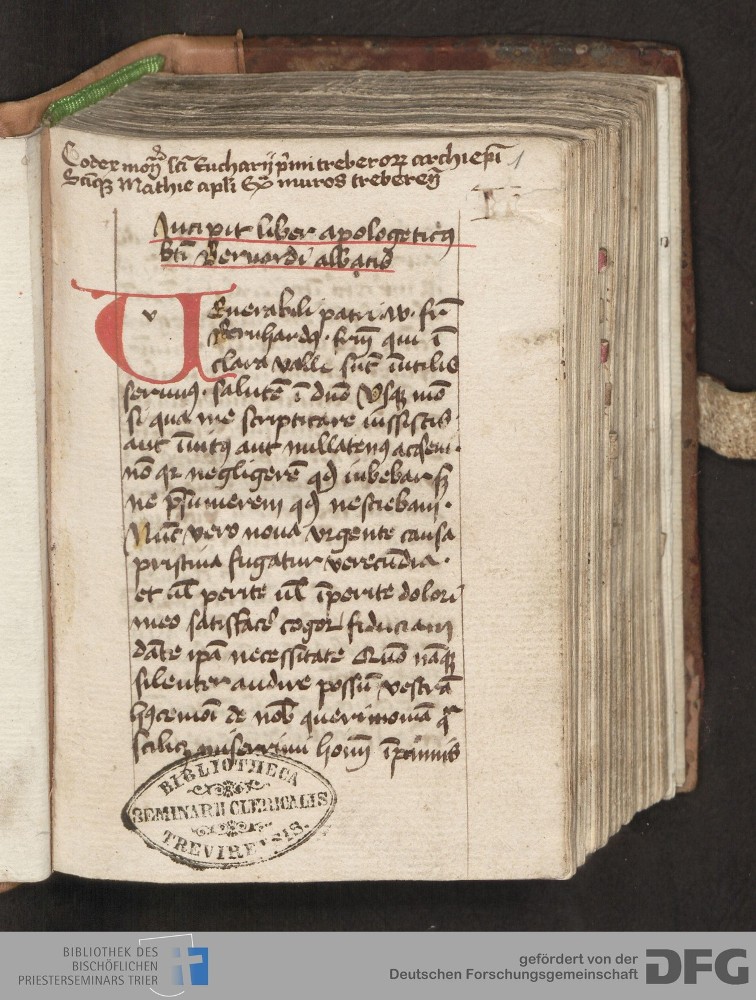 Codex monr̄ scī Eucharij p̄mi treberorꝝ archiep̄i 1
Scīqꝫ Mathie apl̓i Ex͂ muros treberen̄
Incipit liber apologeticꝰ
bt̄i Bernardi abbatis
VEnerabili patri .w. fr̄
Bernhardꝰ . frm̄ qui ī
clara valle sūt īutilis
seruuꝰ . salutē ī dnō Vsqꝫ mō
si qua me scriptitare iussistis .
aut īuitꝰ aut nullatenꝰ acq̄eui .
nō qr negligerē qd̓ iubebar sꝫ
ne p̄sumerem qd̓ nesciebam .
Nūc vero noua vrgente causa
pristina fugatur verecūdia .
et ul̓ perite ul̓ īperite dolori
meo satisfacē cogor fiduciam
dāte ip̄a necessitate Quō nāqꝫ
silenter audire possū vestrā
hꝰcemōi de nob̄ querimoniam qͣ
scilicꝫ miserrimi hoīm ī pānnis
BIBLIOTHECA
SEMINARII CLERICALIS
TREVIRENSIS.
BIBLIOTHEK DES
BISCHÖFLICHEN
PRIESTERSEMINARS TRIER
gefördert von der
Deutschen Forschungsgemeinschaft DFG